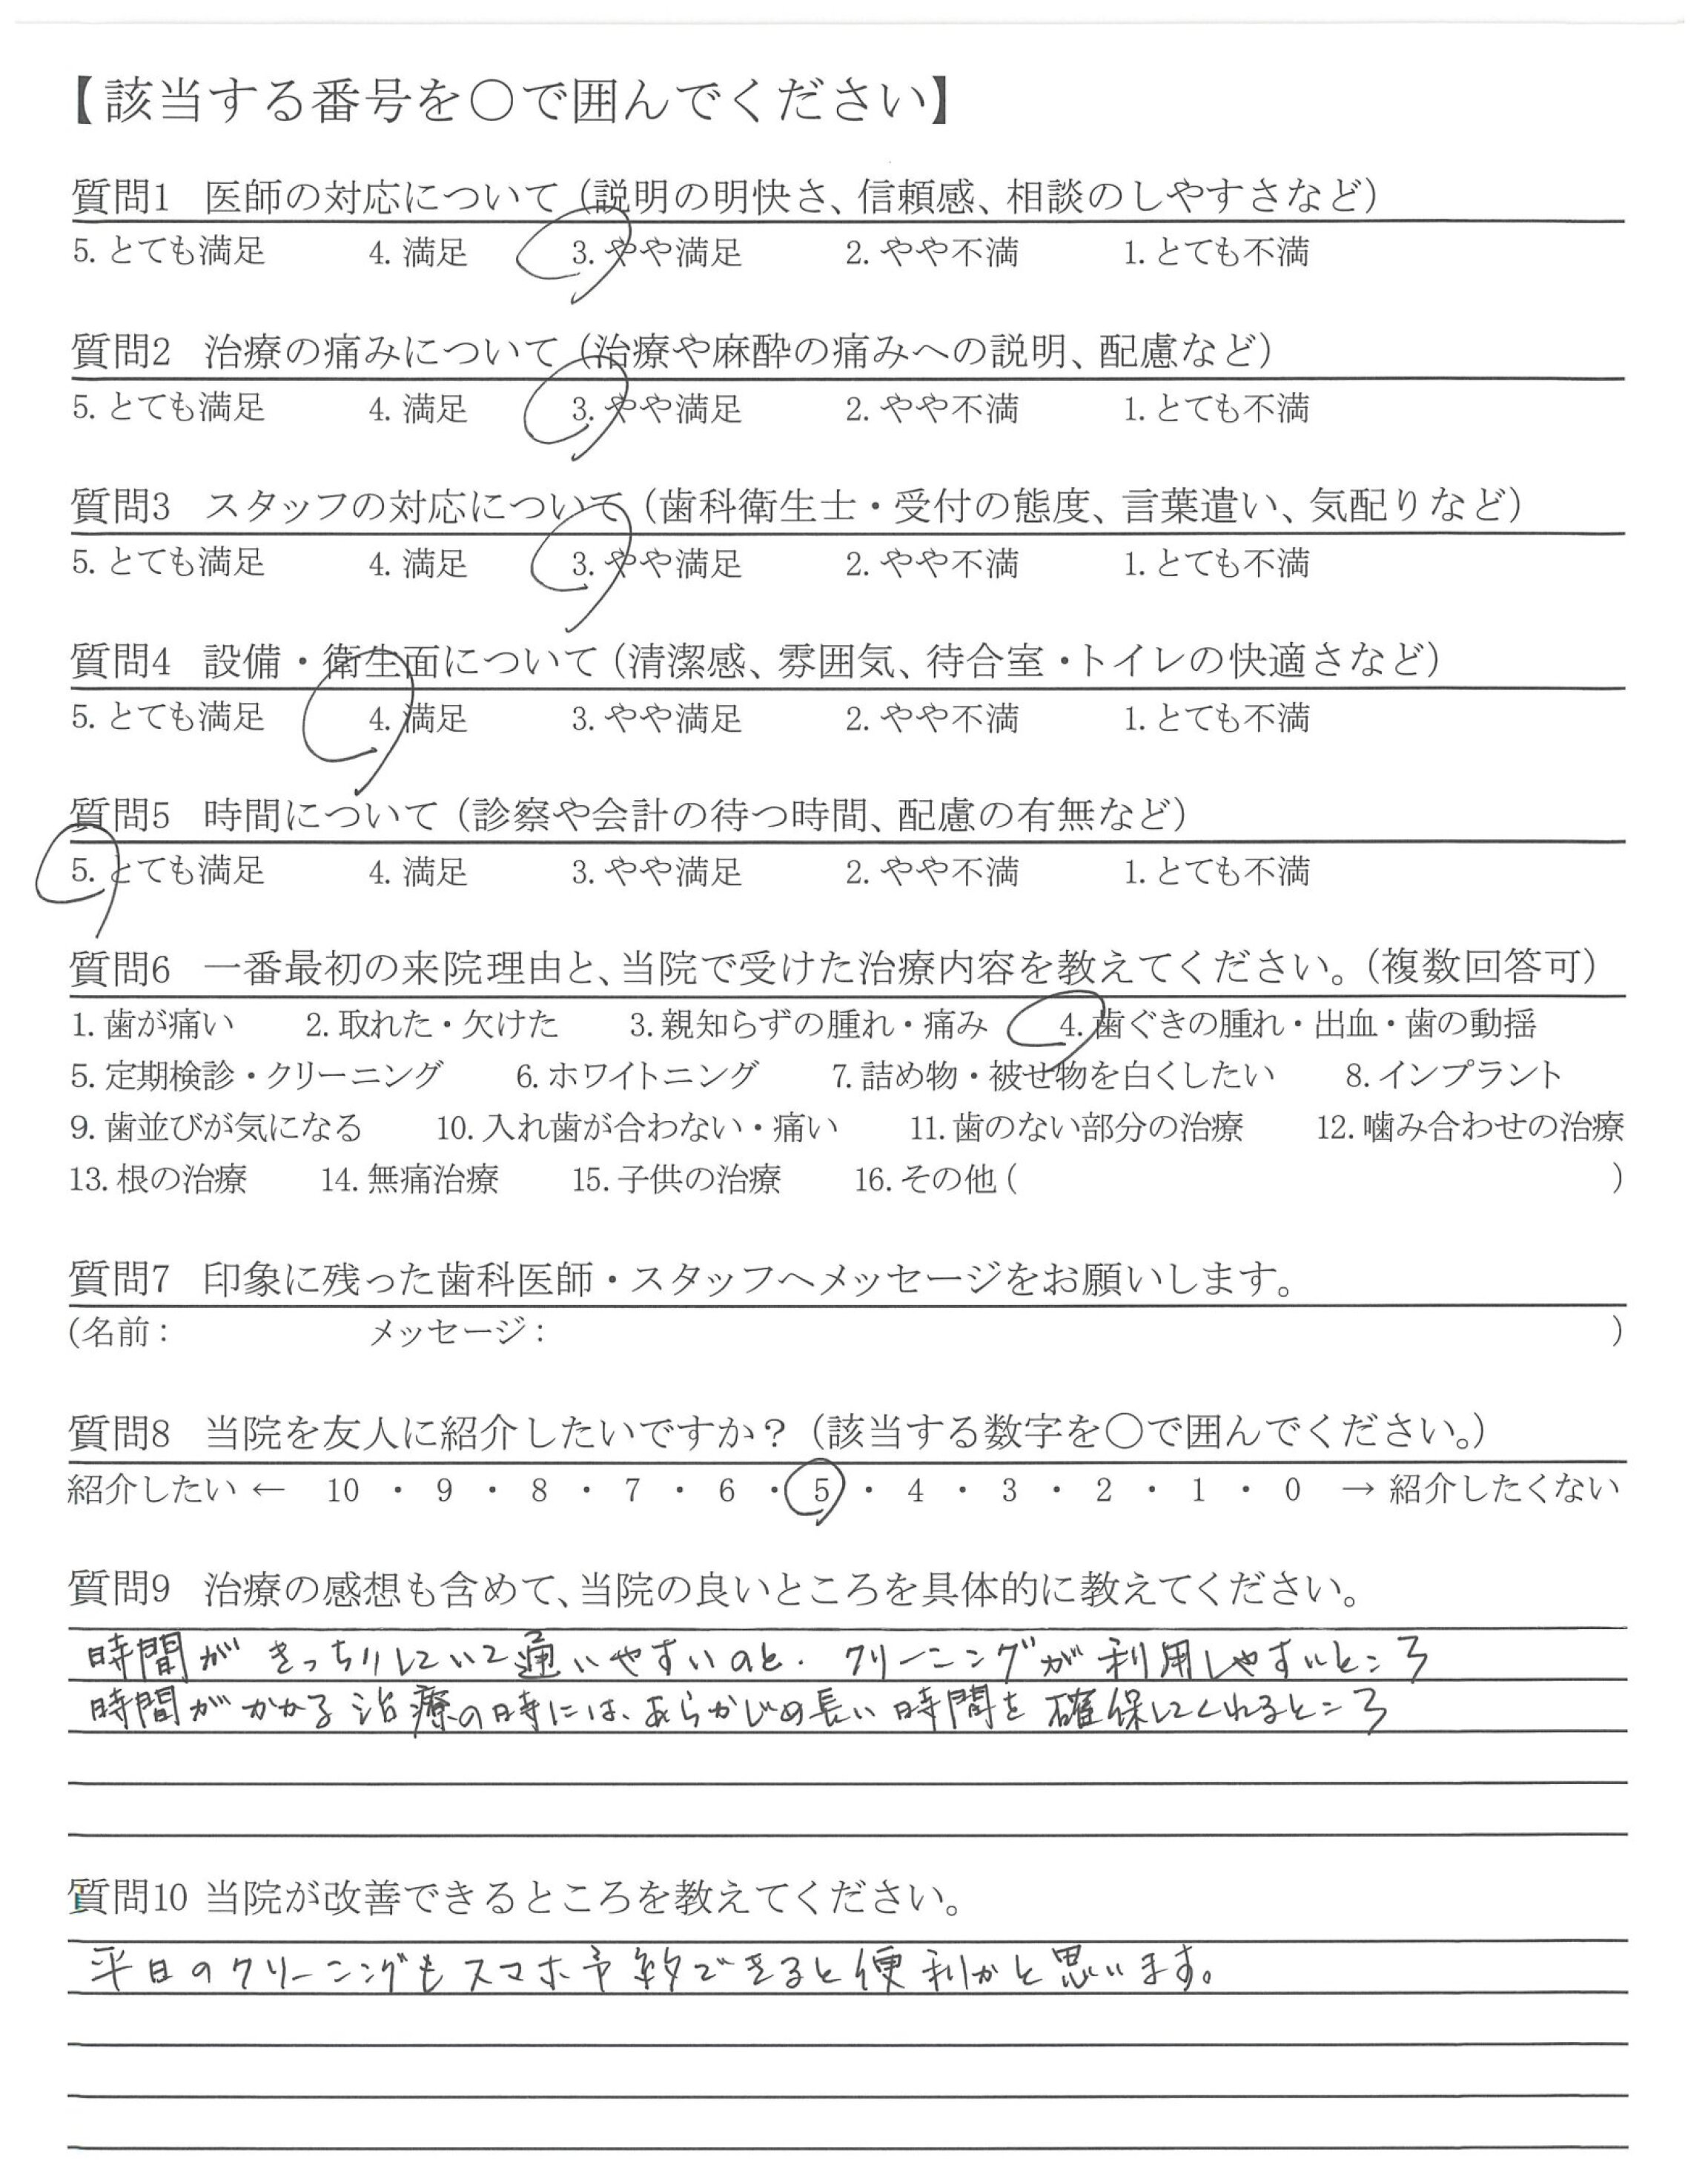 【該当する番号を○で囲んでください】
質問1 医師の対応について（説明の明快さ、信頼感、相談のしやすさなど）
5. とても満足 4. 満足 3. やや満足 2. やや不満 1. とても不満
質問2 治療の痛みについて（治療や麻酔の痛みへの説明、配慮など）
5. とても満足 4. 満足 3. やや満足 2. やや不満 1. とても不満
質問3 スタッフの対応について（歯科衛生士・受付の態度、言葉遣い、気配りなど）
5. とても満足 4. 満足 3. やや満足 2. やや不満 1. とても不満
質問4 設備・衛生面について（清潔感、雰囲気、待合室・トイレの快適さなど）
5. とても満足 4. 満足 3. やや満足 2. やや不満 1. とても不満
質問5 時間について（診察や会計の待つ時間、配慮の有無など）
5. とても満足 4. 満足 3. やや満足 2. やや不満 1. とても不満
質問6 一番最初の来院理由と、当院で受けた治療内容を教えてください。（複数回答可）
1. 歯が痛い 2. 取れた・欠けた 3. 親知らずの腫れ・痛み 4. 歯ぐきの腫れ・出血・歯の動揺
5. 定期検診・クリーニング 6. ホワイトニング 7. 詰め物・被せ物を白くしたい 8. インプラント
9. 歯並びが気になる 10. 入れ歯が合わない・痛い 11. 歯のない部分の治療 12. 噛み合わせの治療
13. 根の治療 14. 無痛治療 15. 子供の治療 16. その他 ( )
質問7 印象に残った歯科医師・スタッフへメッセージをお願いします。
(名前： メッセージ： )
質問8 当院を友人に紹介したいですか？（該当する数字を○で囲んでください。）
紹介したい ← 10 ・ 9 ・ 8 ・ 7 ・ 6 ・ 5 ・ 4 ・ 3 ・ 2 ・ 1 ・ 0 → 紹介したくない
質問9 治療の感想も含めて、当院の良いところを具体的に教えてください。
時間がきっちりしていて通いやすいのと、クリーニングが利用しやすいところ
時間がかかる治療の時には、あらかじめ長い時間を確保してくれるところ
質問10 当院が改善できるところを教えてください。
平日のクリーニングもスマホ予約できると便利かと思います。